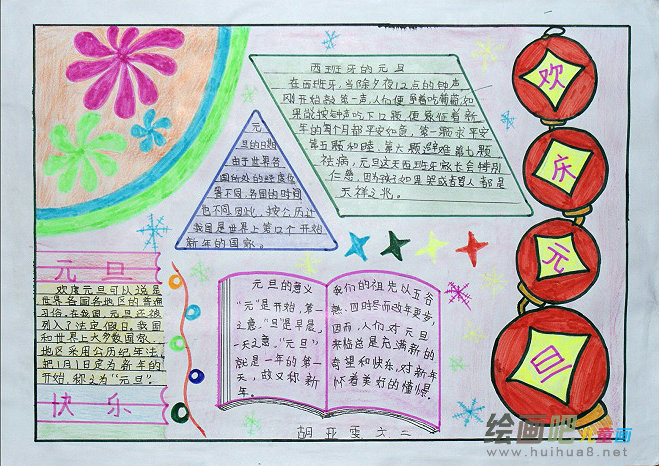 西班牙的元旦
在西班牙,当除夕夜12点的钟声
刚开始敲第一声,人们便争着吃葡萄,如
果能按钟声吃下12颗,便象征着新
年的每个月都平安如意,第一颗求平安
第五颗和睦,第六颗避难第七颗
祛病,元旦这天西班牙家长会特别
仁慈,因为孩子如果哭或者骂人都是
不祥之兆。
元
旦的日期
由于世界各
国所处的经度位
置不同,各国的时间
也不同因此,按公历计
数国是世界上第12个开始
新年的国家。
欢
庆
元
旦
元旦
欢度元旦可以说是
世界各国各地区的普遍
习俗,在我国,元旦还被
列入了法定假日,我国
和世界上大多数国家
地区采用公历纪年法,
把1月1日定为新年的
开始,称之为“元旦”。
快乐
元旦的意义
“元”是开始,第一
之意,“旦”是早晨,
一天之意,“元旦”
就是一年的第一
天,故又称新
年。
我们的祖先以五谷
熟,四时尽而改年更岁,
因而,人们对元旦
来临总是充满新的
希望和快乐,对新年
怀着美好的憧憬。
胡亚雯 六二
绘画吧儿童画
www.huihua8.net